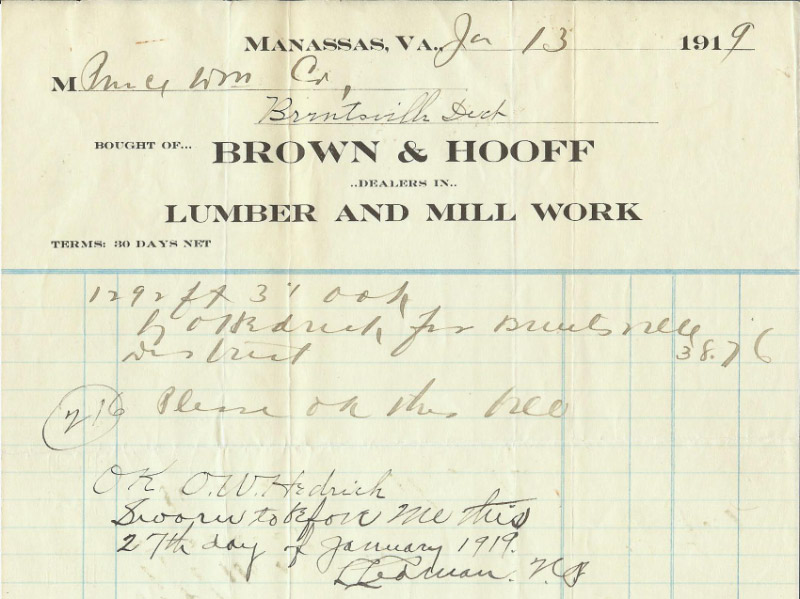 MANASSAS, VA., Ja 13 1919
M Prince Wm Co,
Brentsville Dist
BOUGHT OF...
BROWN & HOOFF
..DEALERS IN..
LUMBER AND MILL WORK
TERMS: 30 DAYS NET
1292 ft 3" oak
by O Hedrick for Brentsville
District 38.76
216 Please ok this bill
OK O.W. Hedrick
Sworn to Before Me this
27th day of January 1919.
Ledman. N.P